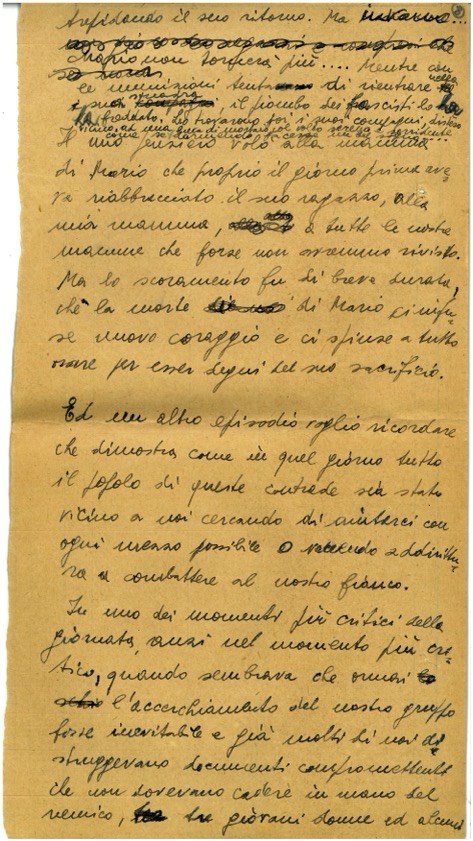 trepidando il suo ritorno. Ma
Mario non tornerà più.... Mentre con
le munizioni tentava di rientrare nella
sua, il piombo dei fascisti lo ha
freddato. Lo trovarono poi, i suoi compagni, disteso
vicino ad una col volto sereno
come se dormisse
Il mio pensiero volò alla mamma
di Mario che proprio il giorno prima ave-
va riabbracciato il suo ragazzo, alla
mia mamma, a tutte le nostre
mamme che forse non avremmo rivisto.
Ma lo scoramento fu di breve durata,
ché la morte di Mario ci infu-
se nuovo coraggio e ci spinse a tutto
osare per esser degni del suo sacrificio.
Ed un altro episodio voglio ricordare
che dimostra come in quel giorno tutto
il popolo di queste contrade sia stato
vicino a noi cercando di aiutarci con
ogni mezzo possibile o venendo addirittu-
ra a combattere al nostro fianco.
In uno dei momenti più critici della
giornata, anzi nel momento più cri-
tico, quando sembrava che ormai
l'accerchiamento del nostro gruppo
fosse inevitabile e già molti di noi di-
struggevano documenti compromettenti
che non dovevano cadere in mano del
nemico, tre giovani donne ed alcuni